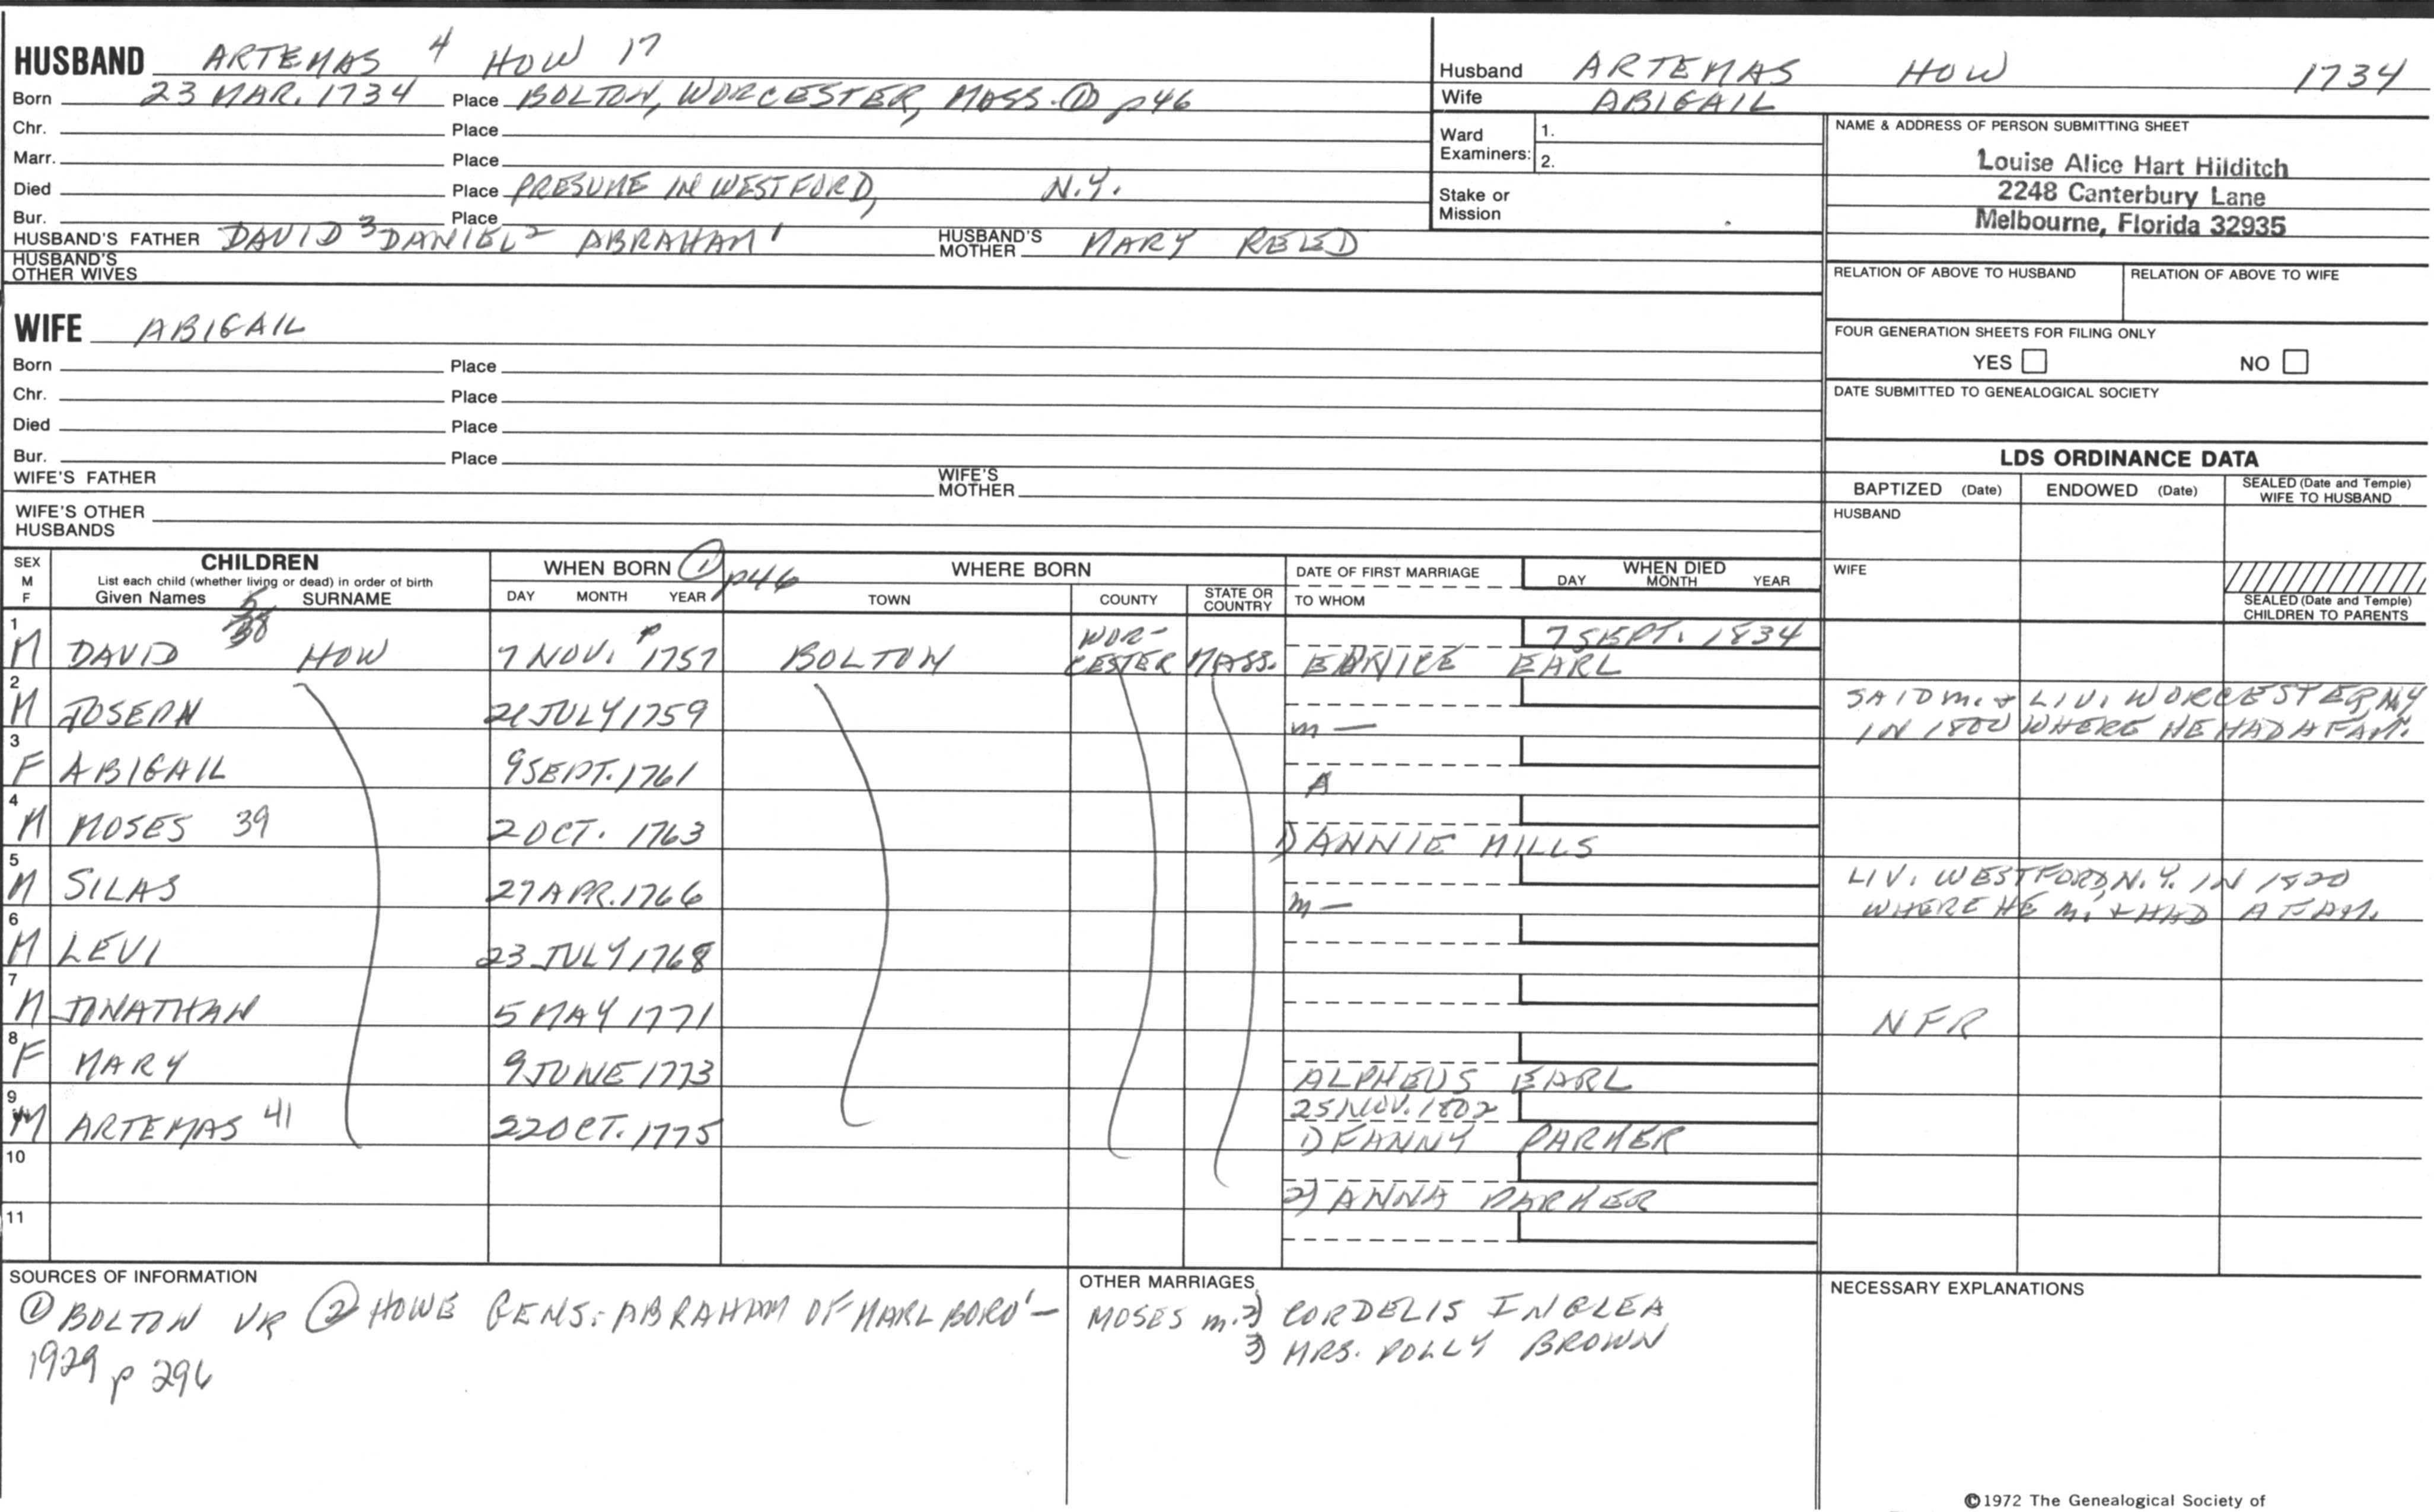 HUSBAND ARTEMAS 4 HOW 17
Born 23 MAR. 1734 Place BOLTON, WORCESTER, MASS. ① p46
Chr. Place
Marr. Place
Died Place PRESUME IN WESTFORD, N.Y.
Bur. Place
HUSBAND'S FATHER DAVID 3 DANIEL 2 ABRAHAM 1 HUSBAND'S MOTHER MARY REED
HUSBAND'S OTHER WIVES
WIFE ABIGAIL
Born Place
Chr. Place
Died Place
Bur. Place
WIFE'S FATHER WIFE'S MOTHER
WIFE'S OTHER HUSBANDS
Husband ARTEMAS HOW 1734
Wife ABIGAIL
Ward Examiners: 1.
2.
Stake or Mission
NAME & ADDRESS OF PERSON SUBMITTING SHEET
Louise Alice Hart Hilditch
2248 Canterbury Lane
Melbourne, Florida 32935
RELATION OF ABOVE TO HUSBAND RELATION OF ABOVE TO WIFE
FOUR GENERATION SHEETS FOR FILING ONLY
YES NO
DATE SUBMITTED TO GENEALOGICAL SOCIETY
LDS ORDINANCE DATA
BAPTIZED (Date) ENDOWED (Date) SEALED (Date and Temple) WIFE TO HUSBAND
HUSBAND
WIFE
SEALED (Date and Temple) CHILDREN TO PARENTS
SEX M F CHILDREN WHEN BORN ① p46 WHERE BORN DATE OF FIRST MARRIAGE WHEN DIED
List each child (whether living or dead) in order of birth
Given Names SURNAME DAY MONTH YEAR TOWN COUNTY STATE OR COUNTRY TO WHOM DAY MONTH YEAR
5
38
1 7 SEPT. 1834
M DAVID HOW 7 NOV. 1757 BOLTON WOR-CESTER MASS. EUNICE EARL
2 SAID m. & LIV. WORCESTER, N.Y.
M JOSEPH 21 JULY 1759 m — IN 1800 WHERE HE HAD A FAM.
3
F ABIGAIL 9 SEPT. 1761
4
M MOSES 39 2 OCT. 1763 1) ANNIE MILLS
5 LIV. WESTFORD, N.Y. IN 1820
M SILAS 27 APR. 1766 m — WHERE HE m. & HAD A FAM.
6
M LEVI 23 JULY 1768
7
M JONATHAN 5 MAY 1771 NFR
8
F MARY 9 JUNE 1773 ALPHEUS EARL
9 25 NOV. 1802
M ARTEMAS 41 22 OCT. 1775 1) FANNY PARKER
10
2) ANNA PARKER
11
SOURCES OF INFORMATION
① BOLTON VR ② HOWE GENS: ABRAHAM OF MARLBORO' —
1929 p 296
OTHER MARRIAGES
MOSES m. 2) CORDELIS INGLEA
3) MRS. POLLY BROWN
NECESSARY EXPLANATIONS
©1972 The Genealogical Society of